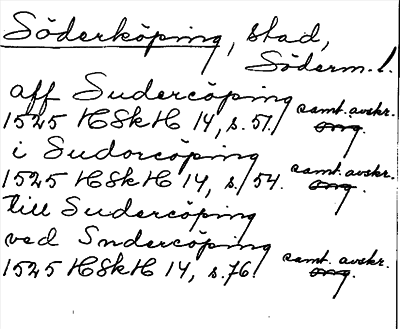 Söderköping, stad,
Söderm. l.
aff Sudercöping
1525 HSkH 14, s. 51. samt. avskr.
orig.
i Sudorcöping
1525 HSkH 14, s. 54. samt. avskr.
orig.
till Sudercöping
ved Sudercöping
1525 HSkH 14, s. 76. samt. avskr.
orig.